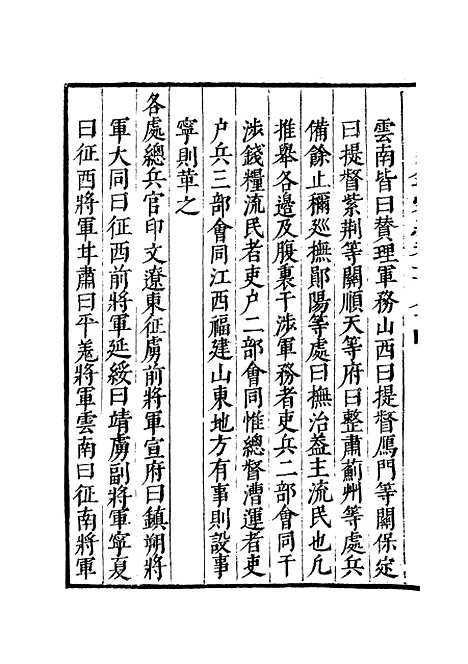 雲南皆曰贊理軍務山西曰提督鴈門等關保㝎
曰提督紫荆等關順天等府曰整肅薊州等處兵
備餘止稱廵撫鄖陽等處曰撫治葢主流民也凢
推舉各邉及腹裏干涉軍務者吏兵二部會同干
涉錢糧流民者吏户二部會同惟總督漕運者吏
户兵三部會同江西福建山東地方有事則設事
寧則革之
各處總兵官印文遼東征虜前將軍宣府曰鎮朔將
軍大同曰征西前將軍延綏曰靖虜副將軍寧夏
曰征西將軍甘肅曰平羌將軍雲南曰征南將軍